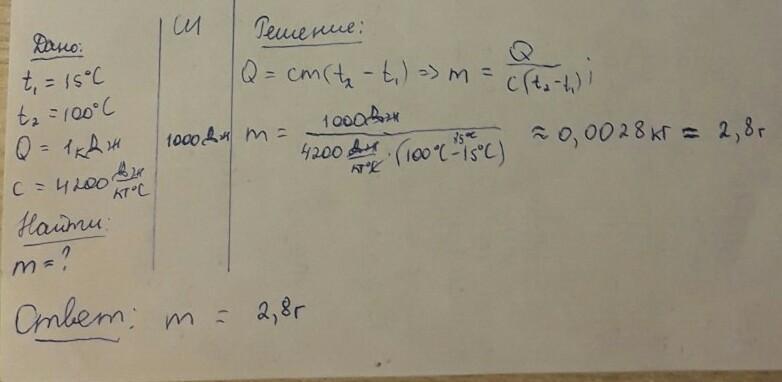 Дано:
t₁ = 15°C
t₂ = 100°C
Q = 1кДж
c = 4200 Дж/кг°C
Найти:
m = ?
СИ
1000Дж
Решение:
Q = cm(t₂ - t₁) => m = Q/c(t₂-t₁);
m = 1000Дж/4200 Дж/кг°C · (100°C - 15°C) ≈ 0,0028кг = 2,8г
Ответ: m = 2,8г